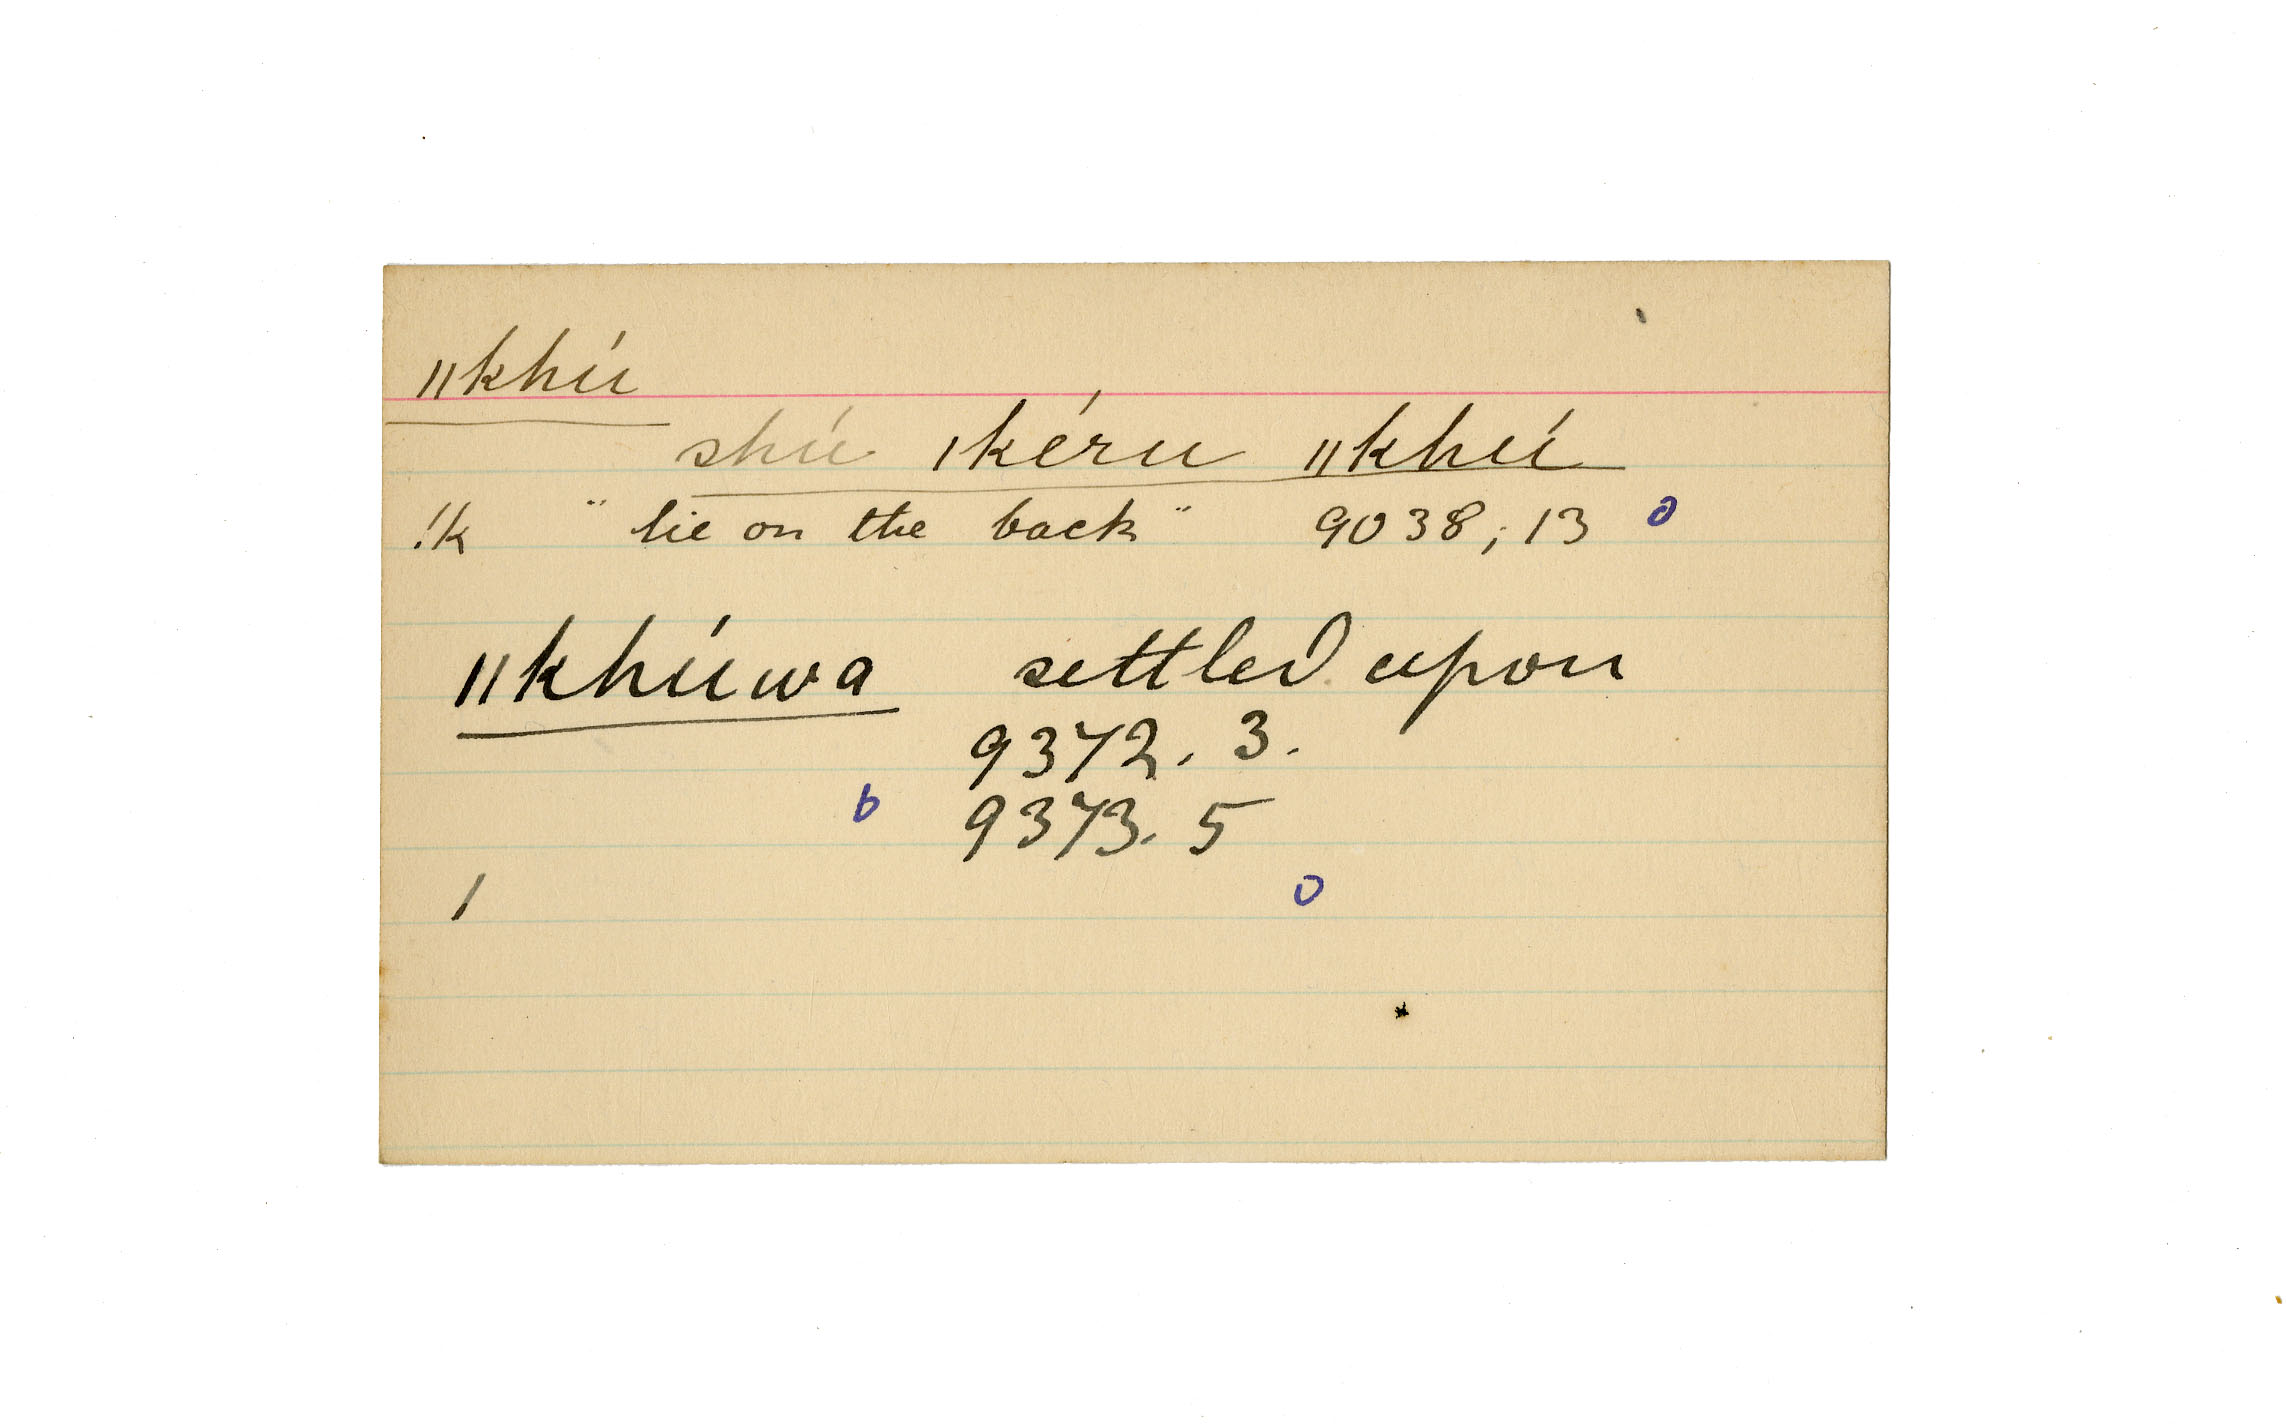 ǁkhú
shú ǀkéru ǁkhú
!k "lie on the back" 9038; 13 o
ǁkhúwa settled upon
9372. 3.
o 9373. 5
/ o